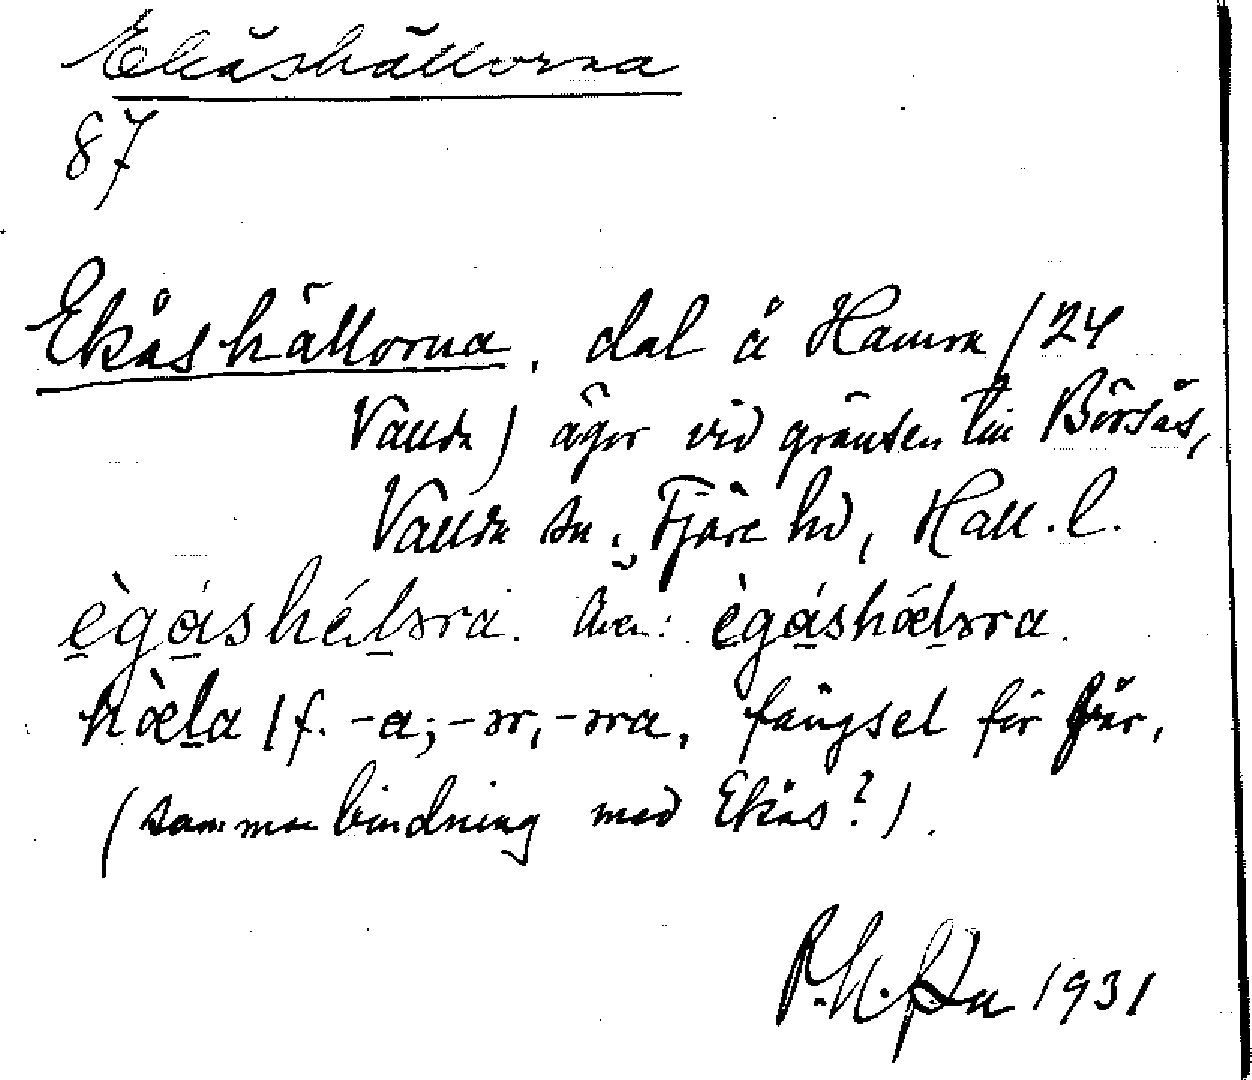 Ekåshällorna
87
Ekåshällorna, dal å Hamra /24
Vallda) ägor vid gränsen till Börsås,
Vallda sn., Fjäre hd, Hall. l.
ègáshél̠ɔra. Även: ègáshǽl̠ɔra.
hæ̀l̠a /f. -a; -ɔr, -ɔra, fängsel för får,
(sammanbindning med Ekås?).
1931